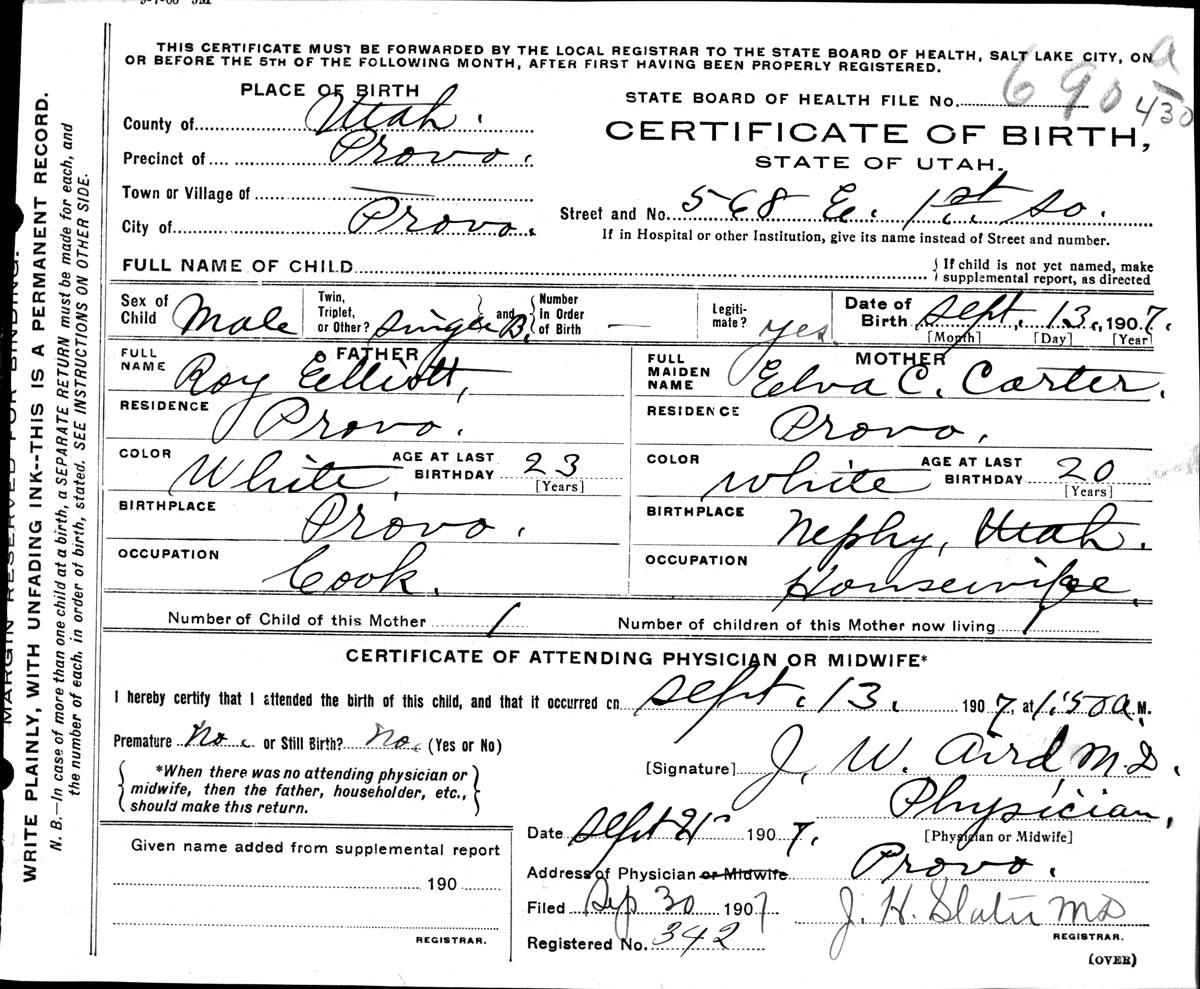 THIS CERTIFICATE MUST BE FORWARDED BY THE LOCAL REGISTRAR TO THE STATE BOARD OF HEALTH, SALT LAKE CITY, ON
OR BEFORE THE 5TH OF THE FOLLOWING MONTH, AFTER FIRST HAVING BEEN PROPERLY REGISTERED.
PLACE OF BIRTH
STATE BOARD OF HEALTH FILE No. 690 a
430
County of Utah.
CERTIFICATE OF BIRTH,
Precinct of Provo.
STATE OF UTAH.
Town or Village of —
Street and No. 568 E. 1st So.
City of Provo.
If in Hospital or other Institution, give its name instead of Street and number.
FULL NAME OF CHILD
{ If child is not yet named, make
supplemental report, as directed
Sex of Child Male
Twin, Triplet, or Other? Single B. and Number in Order of Birth —
Legiti-mate? yes
Date of Birth Sept. 13, 1907.
[Month] [Day] [Year]
FATHER
FULL NAME Roy Elliott,
RESIDENCE Provo.
COLOR White, AGE AT LAST BIRTHDAY 23
[Years]
BIRTHPLACE Provo.
OCCUPATION Cook.
MOTHER
FULL MAIDEN NAME Elva C. Carter.
RESIDENCE Provo.
COLOR White AGE AT LAST BIRTHDAY 20
[Years]
BIRTHPLACE Nephy, Utah.
OCCUPATION Housewife.
Number of Child of this Mother 1
Number of children of this Mother now living 1
CERTIFICATE OF ATTENDING PHYSICIAN OR MIDWIFE*
I hereby certify that I attended the birth of this child, and that it occurred on Sept. 13. 1907, at 1:50 a.M.
Premature No. or Still Birth? No. (Yes or No)
*When there was no attending physician or
midwife, then the father, householder, etc.,
should make this return.
[Signature] J. W. Aird, M.D.
Physician,
[Physician or Midwife]
Date Sept 21 1907.
Address of Physician or Midwife Provo.
Filed Sep 30 1907 J. H. Slater MD
REGISTRAR.
Registered No. 342
(OVER)
Given name added from supplemental report
190
REGISTRAR.
MARGIN RESERVED FOR BINDING.
WRITE PLAINLY, WITH UNFADING INK--THIS IS A PERMANENT RECORD.
N. B.—In case of more than one child at a birth, a SEPARATE RETURN must be made for each, and
the number of each, in order of birth, stated. SEE INSTRUCTIONS ON OTHER SIDE.